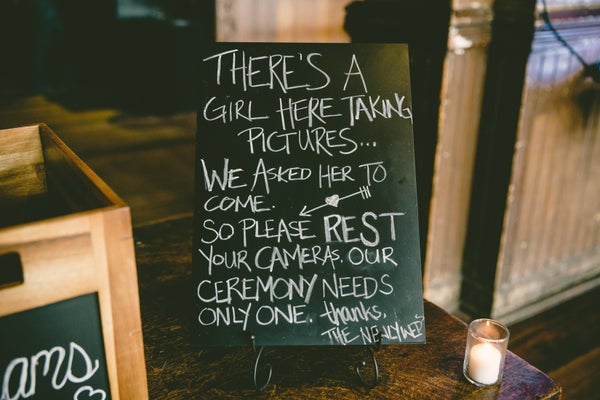 THERE'S A
GIRL HERE TAKING
PICTURES...
WE ASKED HER TO
COME.
SO PLEASE REST
YOUR CAMERAS. OUR
CEREMONY NEEDS
ONLY ONE. thanks,
THE NEWLYWED
ams